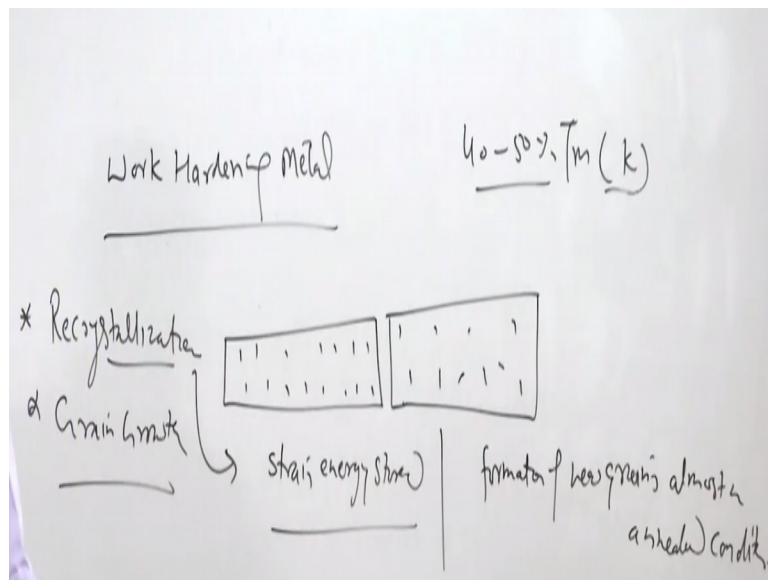 Work Hardening Metal
40-50% Tm (K)
* Recrystallization
& Grain Growth
strain energy stored
formation of new grains almost in
annealed condition